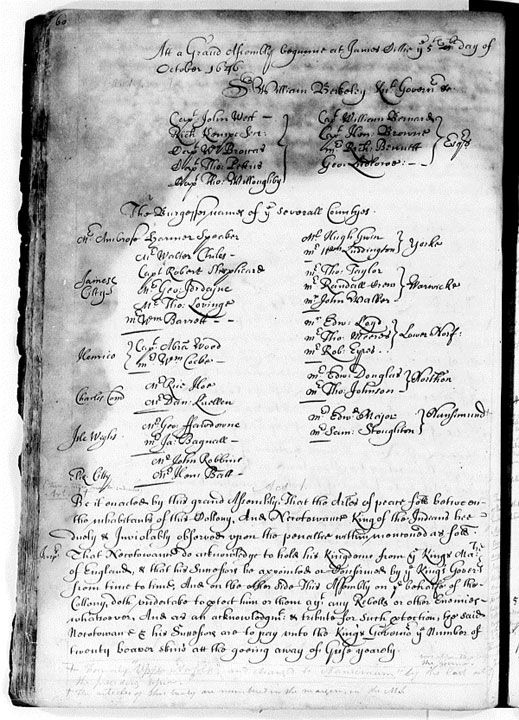 60
Att a Grand Assembly begunne at James Cittie yᵉ 5ᵗʰ day of
October 1646
Sʳ William Berkeley Knᵗ Governʳ &c
Capᵗ John West Capᵗ William Bernard
Rich Kempe Secʳ: Capᵗ Hen: Browne
Capᵗ Wᵐ Brocas Mʳ Rich: Bennett Esqʳˢ
Capᵗ Tho: Pettus Geo: Ludlowe:
Capᵗ Tho: Willoughby
The Burgesses names of yᵉ severall Countyes.
Mʳ Ambrose Harmer Speaker Mʳ Hugh Gwin
Mʳ Walter Chiles mʳ Wᵐ Luddington Yorke
James Cittye Capᵗ Robert Shepheard mʳ Tho: Taylor
Mʳ Geo: Jordayne mʳ Randall Warwicke
Mʳ Tho: Loveinge mʳ John Walker
mʳ Wᵐ Barrett mʳ Edw: Loyd
Henrico Capᵗ Abrā Wood mʳ Tho: Meeres Lower Norf:
mʳ Wᵐ Cocke mʳ Rob: Eyres
Mʳ Rice Hoe mʳ Edw: Douglas Northon
Charles Mʳ Dan: Luellen mʳ Tho: Johnson
Isle Wight Mʳ Geo: ffawdowne mʳ Edwᵈ Major Nansimund
mʳ Ja: Bagnall mʳ Sam: Stoughton
Mʳ John Robbins
Eliz Citty Mʳ Hen: Ball
Act 1
Be it enacted by this grand Assembly. That the Articles of peace foll: between
the inhabitants of this Collony, And Necotowance King of the Indians bee
Duely & Inviolably observed upon the penaltie within mentioned as foll:
Imp: That Necotowance do acknowledge to hold his Kingdome from yᵉ Kings Maᵗⁱᵉ
of England, & that his Successors be appointed or Confirmed by yᵉ Kings Governʳˢ
from time to time, And on the other side This Assembly on yᵉ behalfe of the
Collony, doth, undertake to protect him or them agᵗ any Rebells or other Enemies
whatsoever, And as an acknowledgmᵗ & tribute for such protection, the said
Necotowance & his Successors are to pay unto the Kings Governʳ yᵉ Number of
twenty beaver skins att the goeing away of Geese yearely
Upper Norfolk and changed to Nansimum by the last act
the preceding
† The articles of this treaty are numbered in the margin, in the MS.